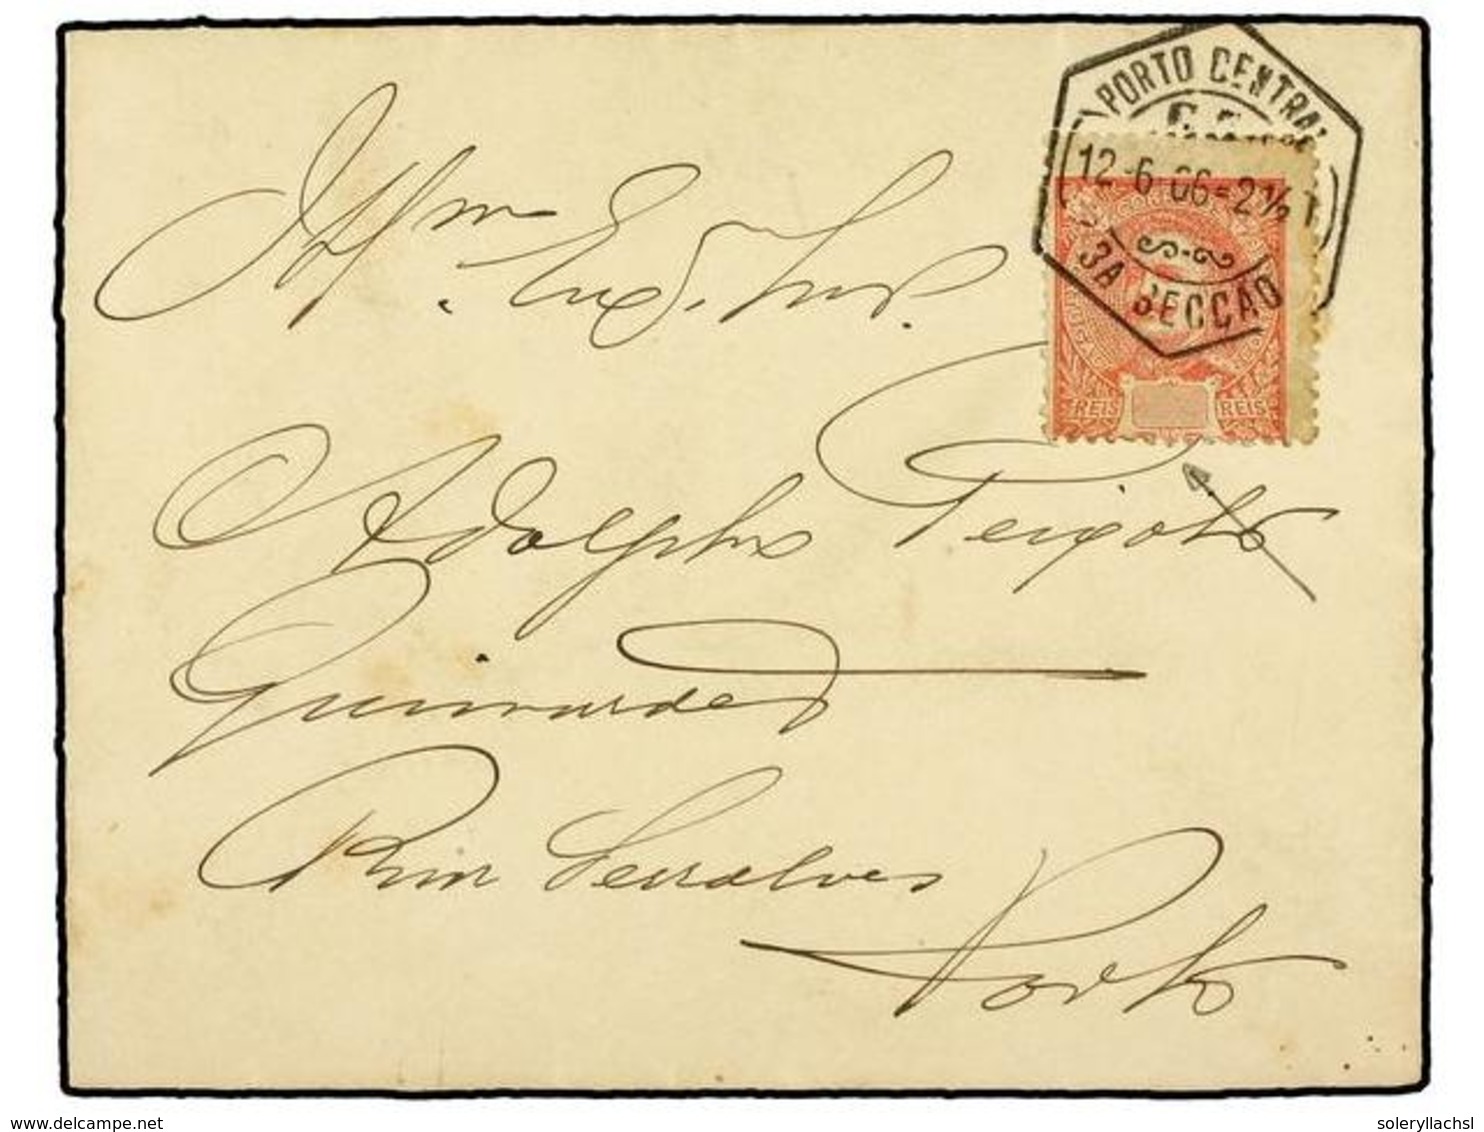 PORTO CENTRAL
12-6-06=2½ T.
3A SECCAO
CORREIOS
REIS REIS
Illmo. Exo. Snr.
Adolpho Peixoto
Guimarães
Rua Serralves
Porto
delcampe.net
soleryllachsl